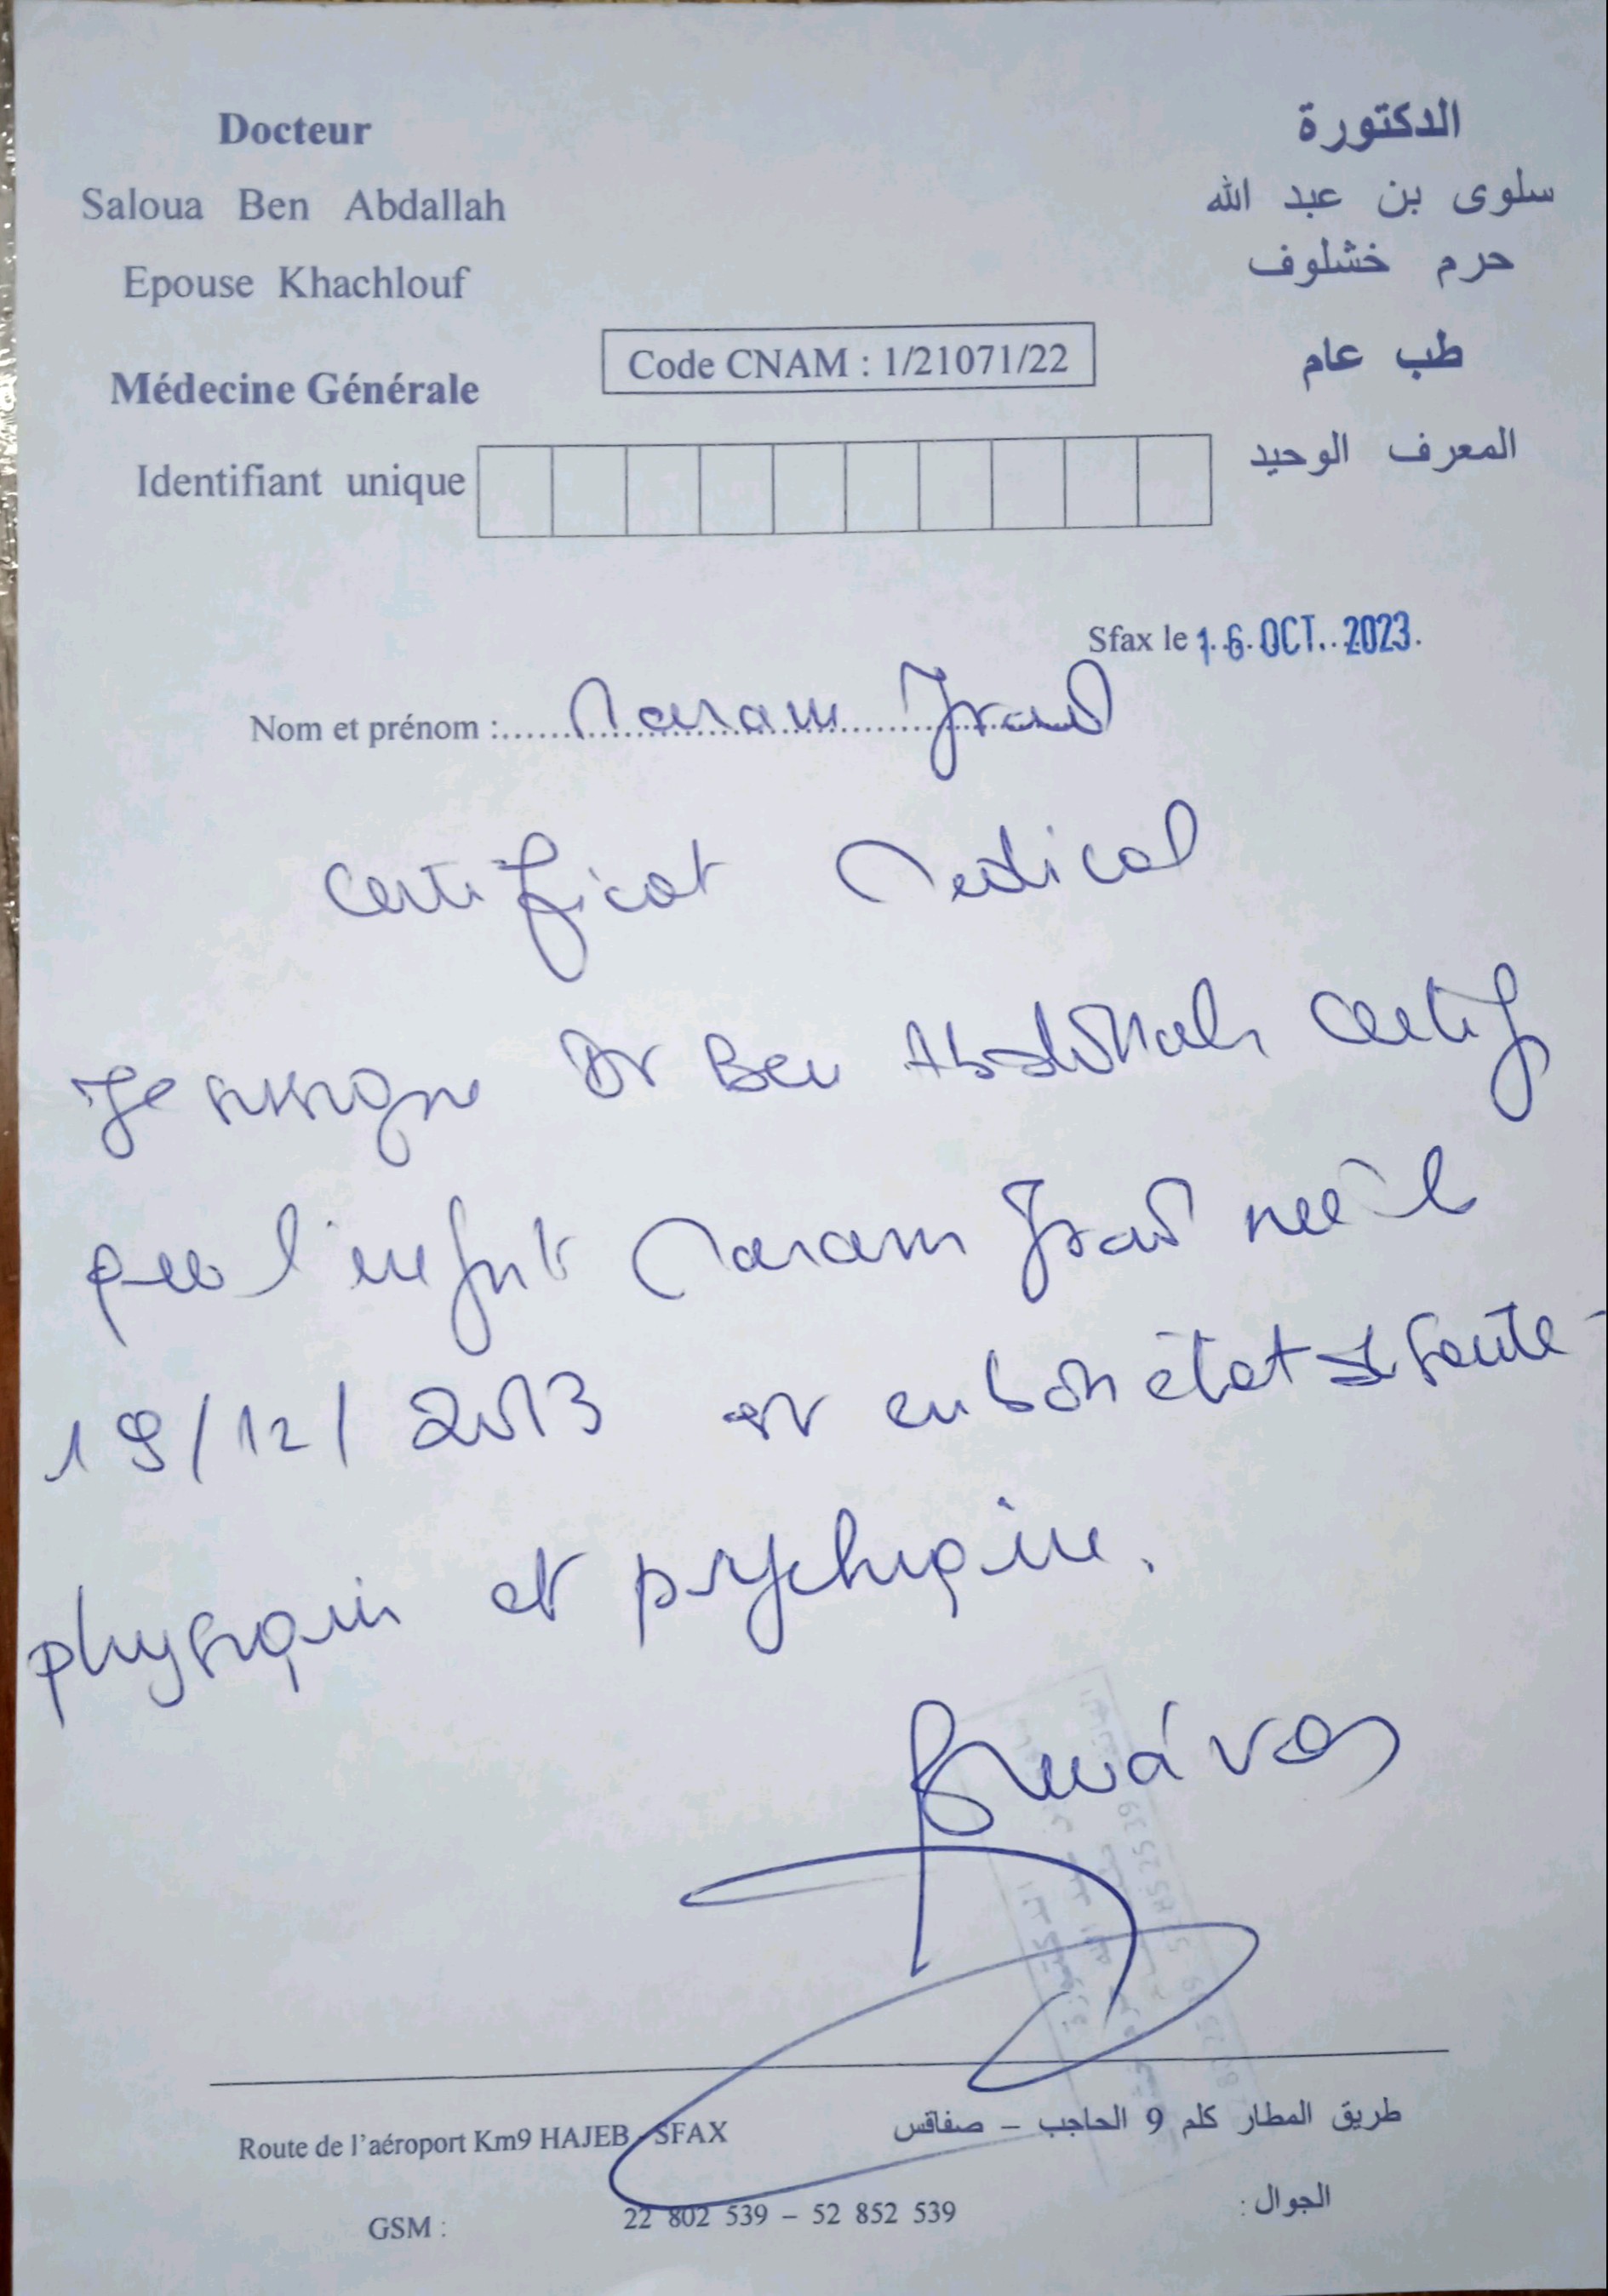 Docteur
Saloua Ben Abdallah
Epouse Khachlouf
Médecine Générale
الدكتورة
سلوى بن عبد الله
حرم خشلوف
طب عام
Code CNAM : 1/21071/22
Identifiant unique
المعرف الوحيد
Sfax le 16 OCT. 2023
Nom et prénom : Maram Jrad
Certificat Medical
Je soussigne Dr Ben Abdallah Certif
que l'enfant Maram Jrad née le
19/12/2013 est en bon état de santé
physique et psychique.
Route de l'aéroport Km9 HAJEB - SFAX
طريق المطار كلم 9 الحاجب – صفاقس
GSM : 22 802 539 – 52 852 539 الجوال :